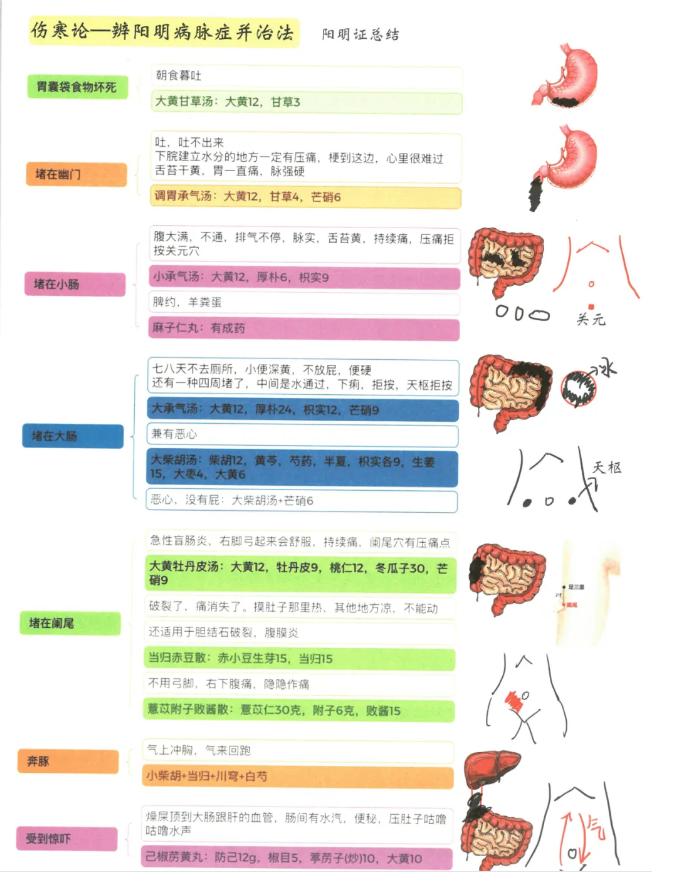 伤寒论—辨阳明病脉症并治法
阳明证总结
胃囊袋食物坏死
朝食暮吐
大黄甘草汤：大黄12，甘草3
堵在幽门
吐，吐不出来
下脘建立水分的地方一定有压痛，梗到这边，心里很难过
舌苔干黄，胃一直痛，脉强硬
调胃承气汤：大黄12，甘草4，芒硝6
堵在小肠
腹大满，不通，排气不停，脉实，舌苔黄，持续痛，压痛拒
按关元穴
小承气汤：大黄12，厚朴6，枳实9
脾约，羊粪蛋
麻子仁丸：有成药
关元
堵在大肠
七八天不去厕所，小便深黄，不放屁，便硬
还有一种四周堵了，中间是水通过，下痢，拒按，天枢拒按
大承气汤：大黄12，厚朴24，枳实12，芒硝9
兼有恶心
大柴胡汤：柴胡12，黄芩，芍药，半夏，枳实各9，生姜
15，大枣4，大黄6
恶心，没有屁：大柴胡汤+芒硝6
水
天枢
堵在阑尾
急性盲肠炎，右脚弓起来会舒服，持续痛，阑尾穴有压痛点
大黄牡丹皮汤：大黄12，牡丹皮9，桃仁12，冬瓜子30，芒
硝9
破裂了，痛消失了。摸肚子那里热，其他地方凉，不能动
还适用于胆结石破裂，腹膜炎
当归赤豆散：赤小豆生芽15，当归15
不用弓脚，右下腹痛，隐隐作痛
薏苡附子败酱散：薏苡仁30克，附子6克，败酱15
足三里
阑尾
奔豚
气上冲胸，气来回跑
小柴胡+当归+川穹+白芍
受到惊吓
燥屎顶到大肠跟肝的血管，肠间有水汽，便秘，压肚子咕噜
咕噜水声
己椒苈黄丸：防己12g，椒目5，葶苈子(炒)10，大黄10
气